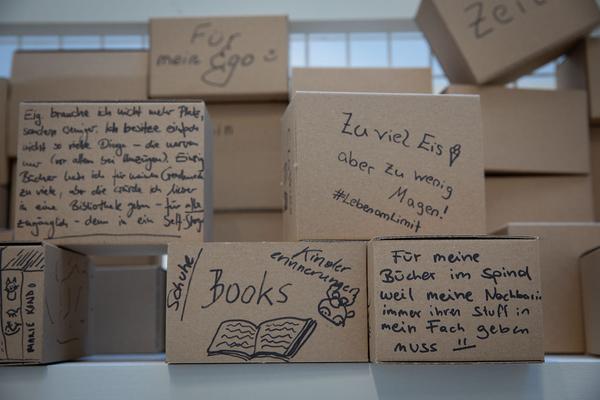 Für
mein Ego
Zeit
Eig. brauche ich nicht mehr Platz,
sondern weniger. Ich besitze einfach
nicht so viele Dinge – die waren
nur (vor allem bei Umzügen). Einzig
Bücher habe ich für meinen Geschmack
zu viele, aber die würde ich lieber
in eine Bibliothek geben – für alle
zugänglich – denn in ein Self-Storage
Zu viel Eis
aber zu wenig
Magen!
#LebenamLimit
MARIE KONDO
Schuhe
Books
Kinder
erinnerungen
Für meine
Bücher im Spind
weil meine Nachbarin
immer ihren Stuff in
mein Fach geben
muss !!